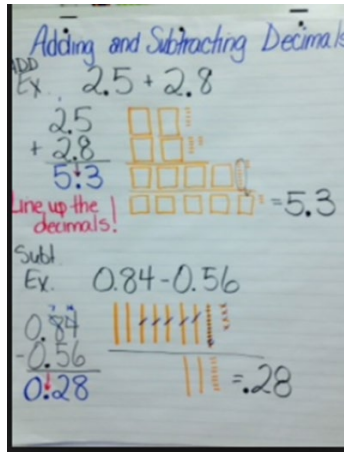 Adding and Subtracting Decimals
ADD
Ex. 2.5 + 2.8
2.5
+ 2.8
5.3
= 5.3
Line up the
decimals!
Subt.
Ex. 0.84 - 0.56
7 14
0.84
-0.56
0.28
= .28